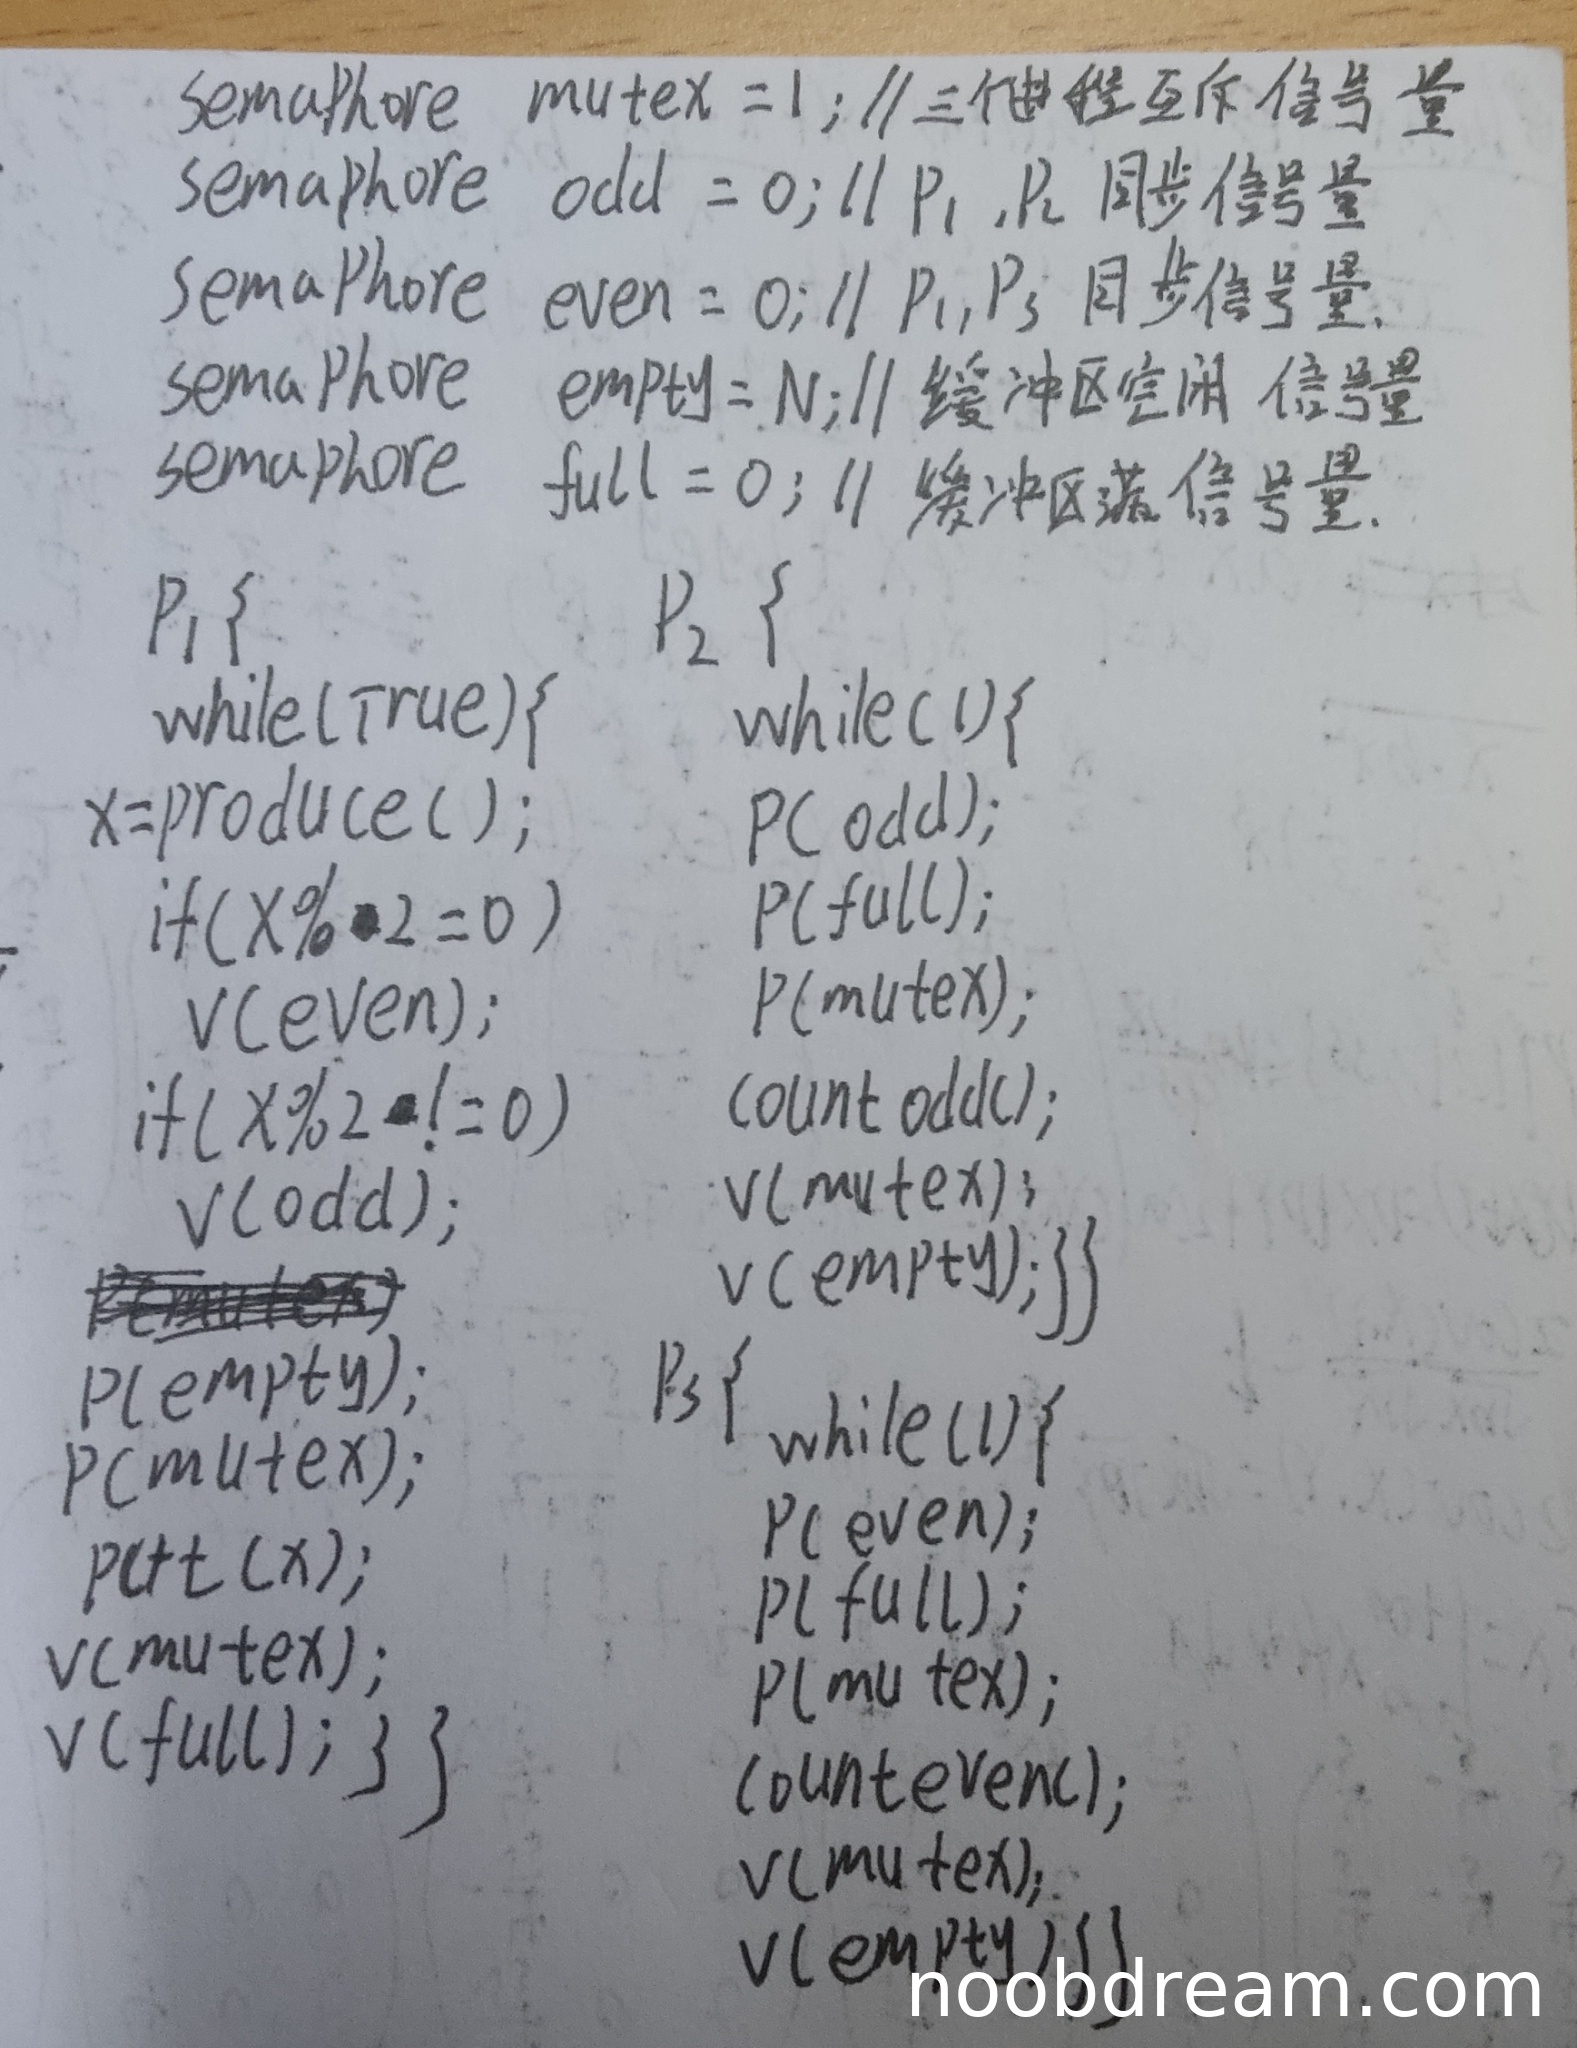 semaphore mutex =1; //三个进程互斥信号量
semaphore odd = 0; // P1,P2 同步信号量
semaphore even = 0; // P1,P3 同步信号量.
semaphore empty = N; // 缓冲区空闲信号量
semaphore full = 0; // 缓冲区满信号量.
P1{
while(True){
x=produce();
if(X%2=0)
V(even);
if(X%2!=0)
V(odd);
P(empty);
P(mutex);
put(x);
V(mutex);
V(full);}}
P2{
while(1){
P(odd);
P(full);
P(mutex);
countodd();
V(mutex);
V(empty);}}
P3{
while(1){
P(even);
P(full);
P(mutex);
counteven();
V(mutex);
V(empty)}}
noobdream.com